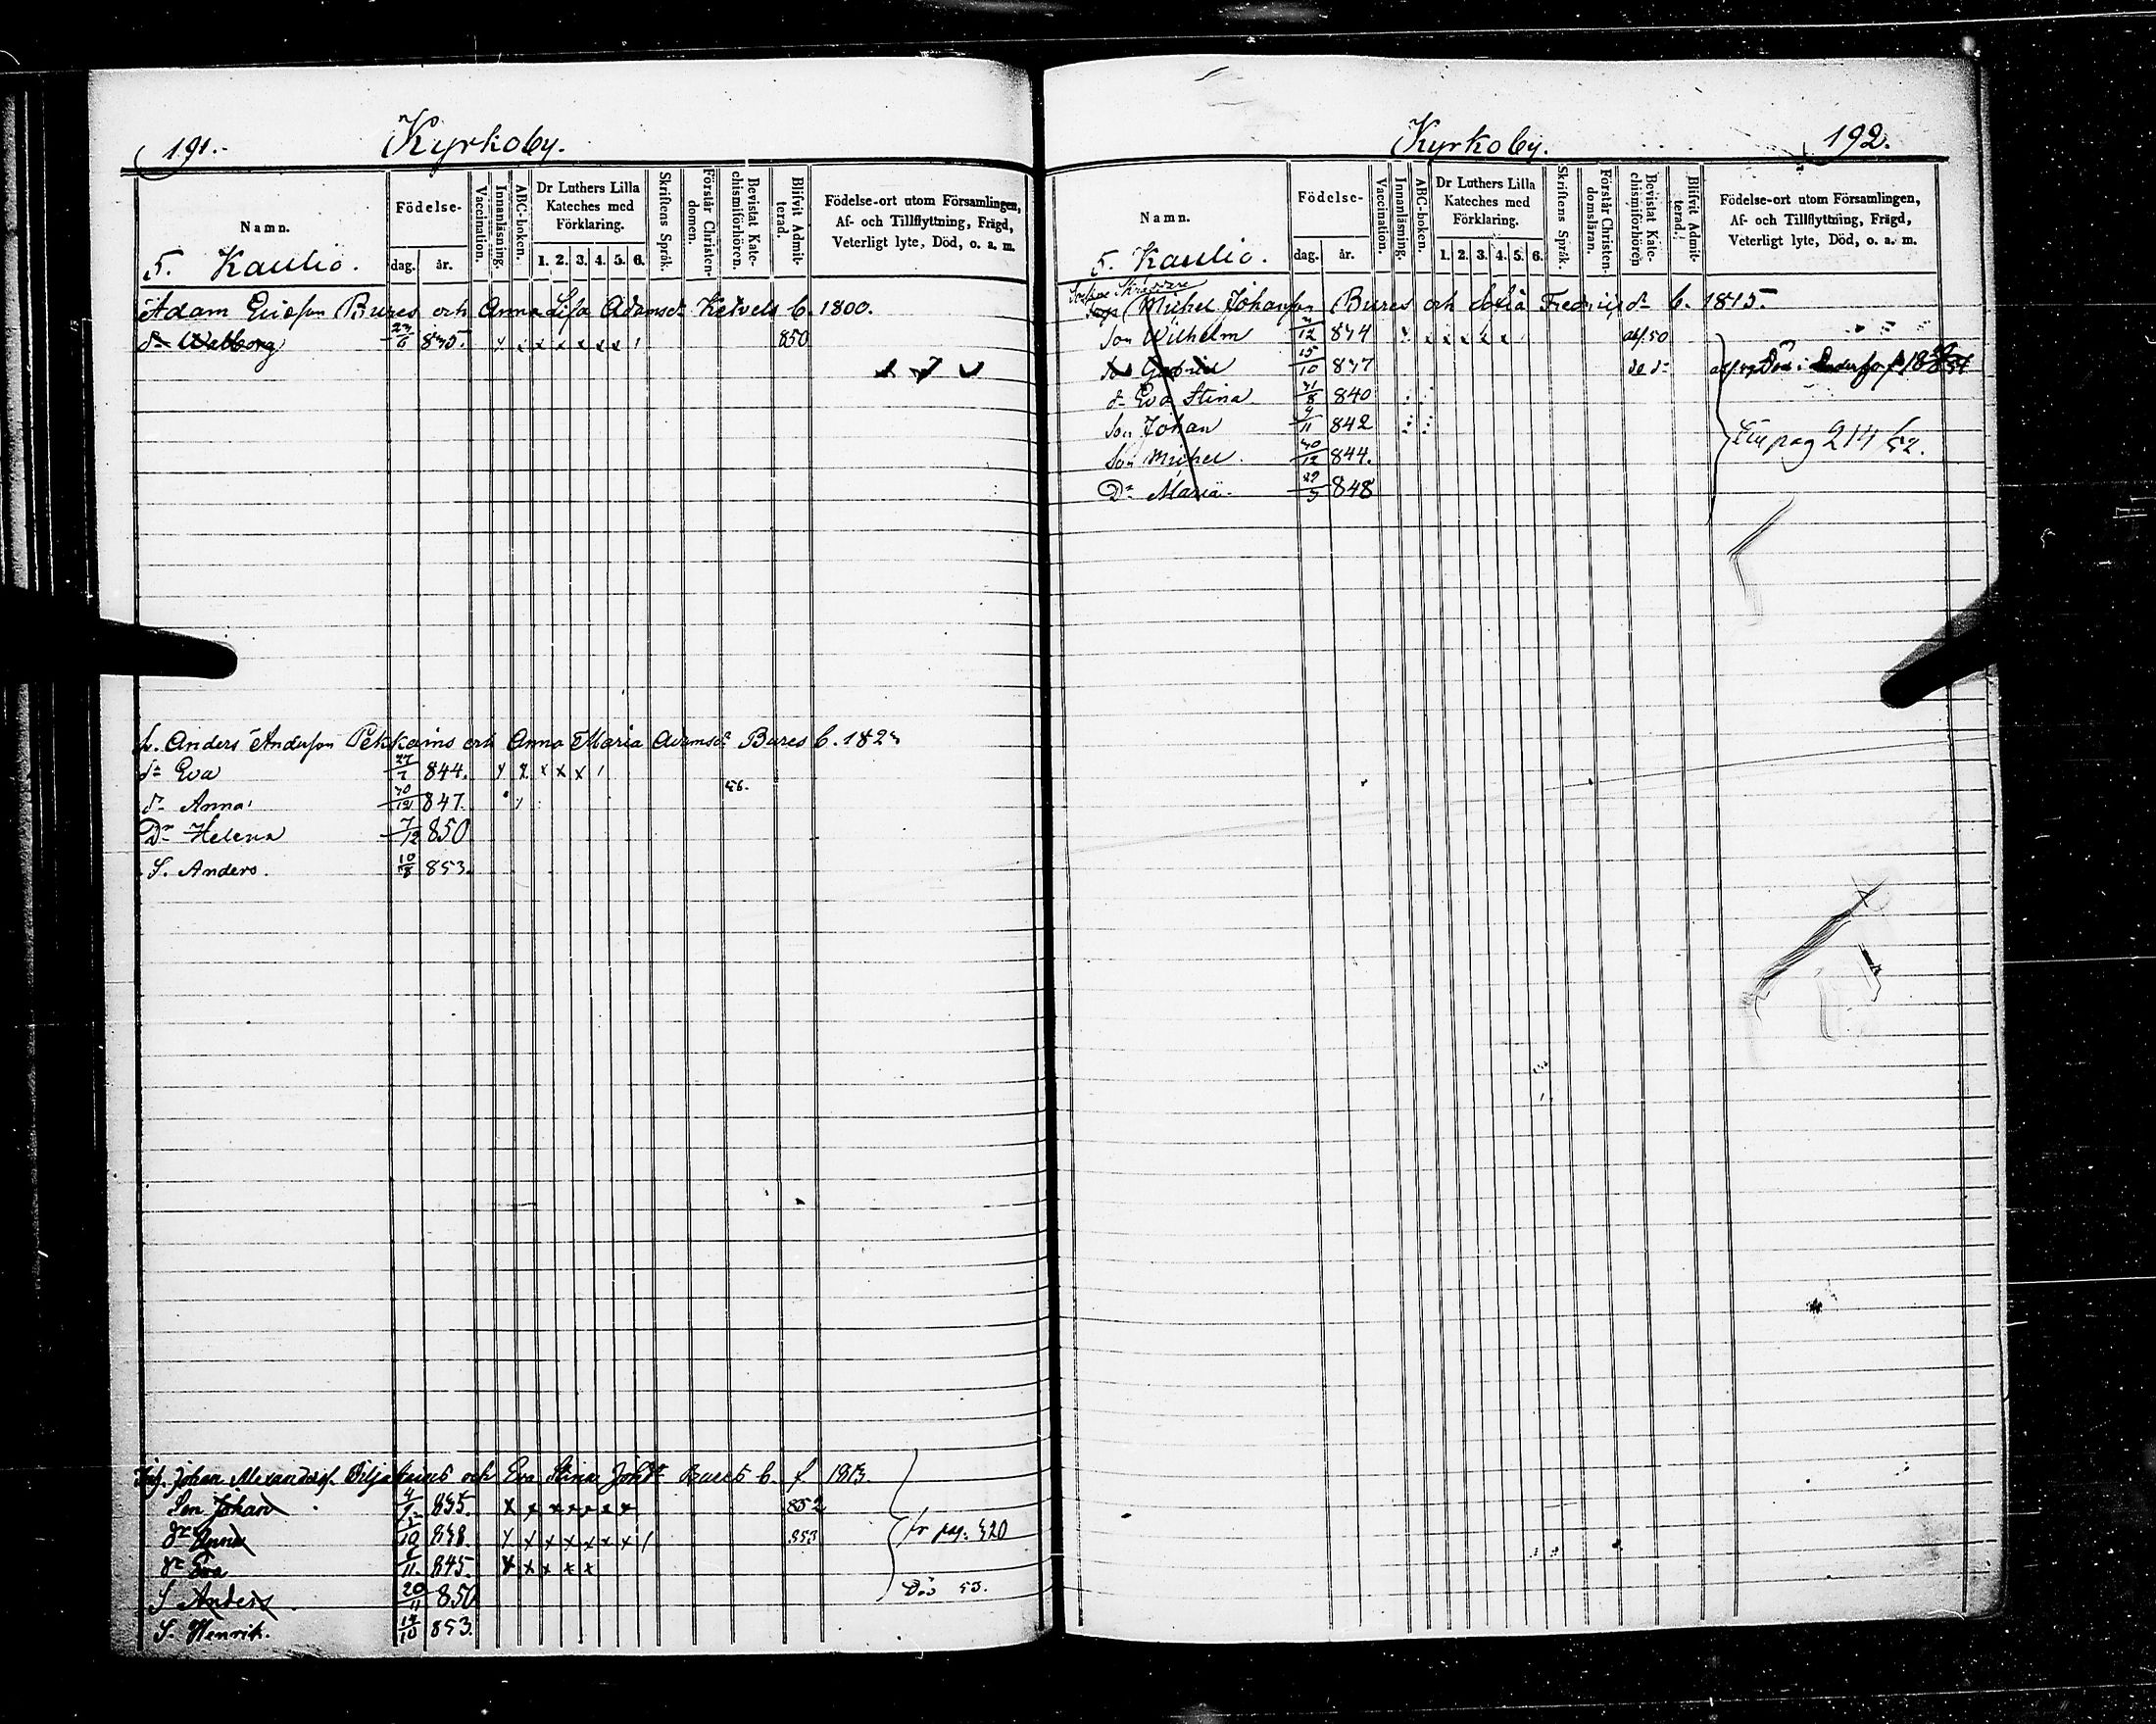 191.
Kyrkoby.
Namn.
Födelse-
dag. år.
Vaccination.
Innanläsning.
ABC-boken.
Dr Luthers Lilla Kateches med Förklaring.
1. 2. 3. 4. 5. 6.
Skriftens Språk.
Förstår Christendomen.
Bevistat Katechismiförhören.
Blifvit Admitterad.
Födelse-ort utom Församlingen, Af- och Tillflyttning, Frägd, Veterligt lyte, Död, o. a. m.
5. Kaulio.
Adam Ericsson Bures och Anna Lisa Adamsdr Ketvels b. 1800.
dr Walborg 835. x x x x x x 850
Anders Andersson Pekkoins och Anna Maria Adamsdr Bures b.
dr Eva 844. x x x x x 56.
dr Anna 847.
Dr Helena 7/12 850
S. Anders. 10/8 853.
Johan Alexandersf. och Eva Stina Johdr Burets b. f 1813.
Son Johan 835. x x x x x x x 852
dr Anna 838. x x x x x x x 853 fr pag. 320
dr Eva 11. 845. x x x x x
S Anders 20/11 850 Död 53.
S. Henrik. 853.
Kyrkoby.
192.
Namn.
Födelse-
dag. år.
Vaccination.
Innanläsning.
ABC-boken.
Dr Luthers Lilla Kateches med Förklaring.
1. 2. 3. 4. 5. 6.
Skriftens Språk.
Förstår Christendomsläran.
Bevistat Katechismiförhören
Blifvit Admitterad.
Födelse-ort utom Församlingen, Af- och Tillflyttning, Frägd, Veterligt lyte, Död, o. a. m.
5. Kaulio.
Michel Johansson Bures och Sofia b. 1815.
Son Wilhelm 834 x x x x x
Son Gabriel 15/10 837
dr Eva Stina 840
Son Johan 842
Son Michel. 844.
Dr Maria 848
pag 214